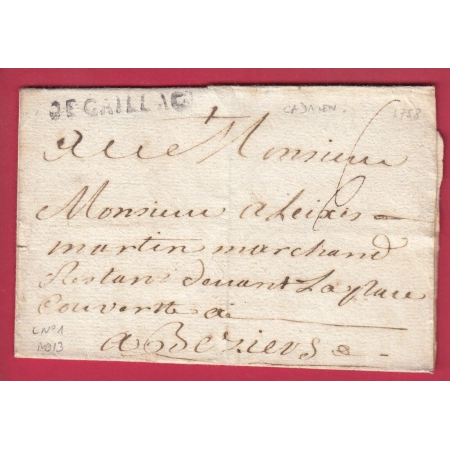 DEGAILLAC
CADALEN. 1788
A Monsieur
Monsieur Aleixis
martin marchand
Restant devant La place
Couverte a
a Beziers
LN°1